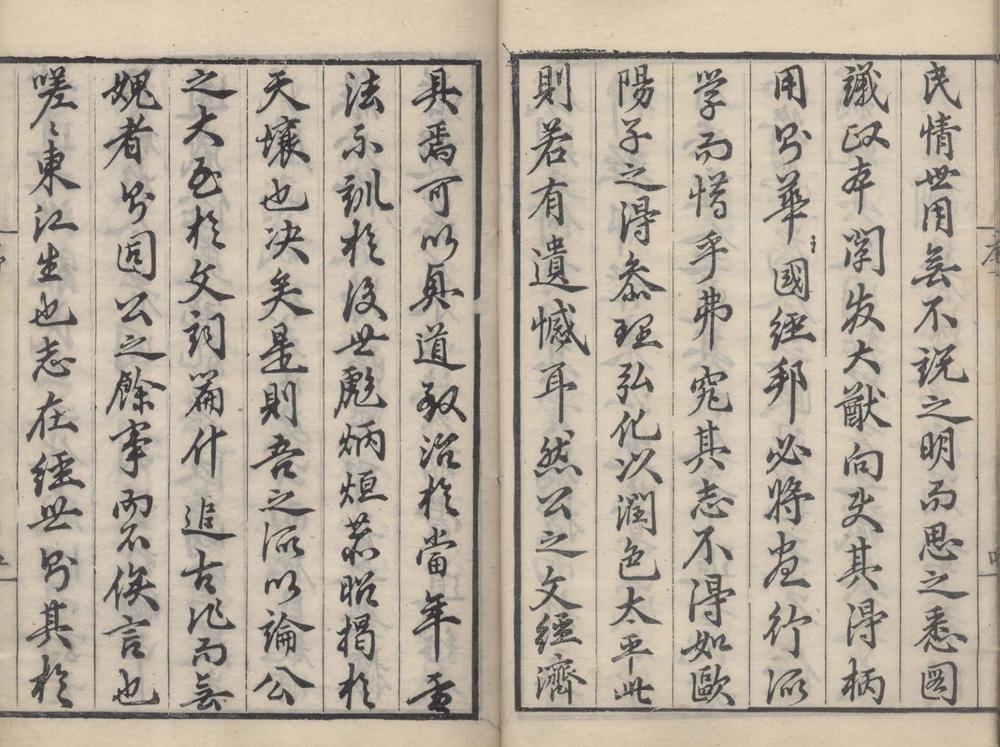 民情世用無不說之明而思之悉圖
議政本閎發大猷向使其得柄
用則華國經邦必將盡行所
学而惜乎弗究其志不得如歐
陽子之得叅理弘化以潤色太平此
則若有遺憾耳然公之文經濟
具焉可以興道致治於當年
法示訓於後世彪炳烜昭揭於
天壤也决矣是則吾之所以論公
之大至於文詞篇什追古作而無
媿者則固公之餘事而不俟言也
嗟〻東江生也志在經世則其於